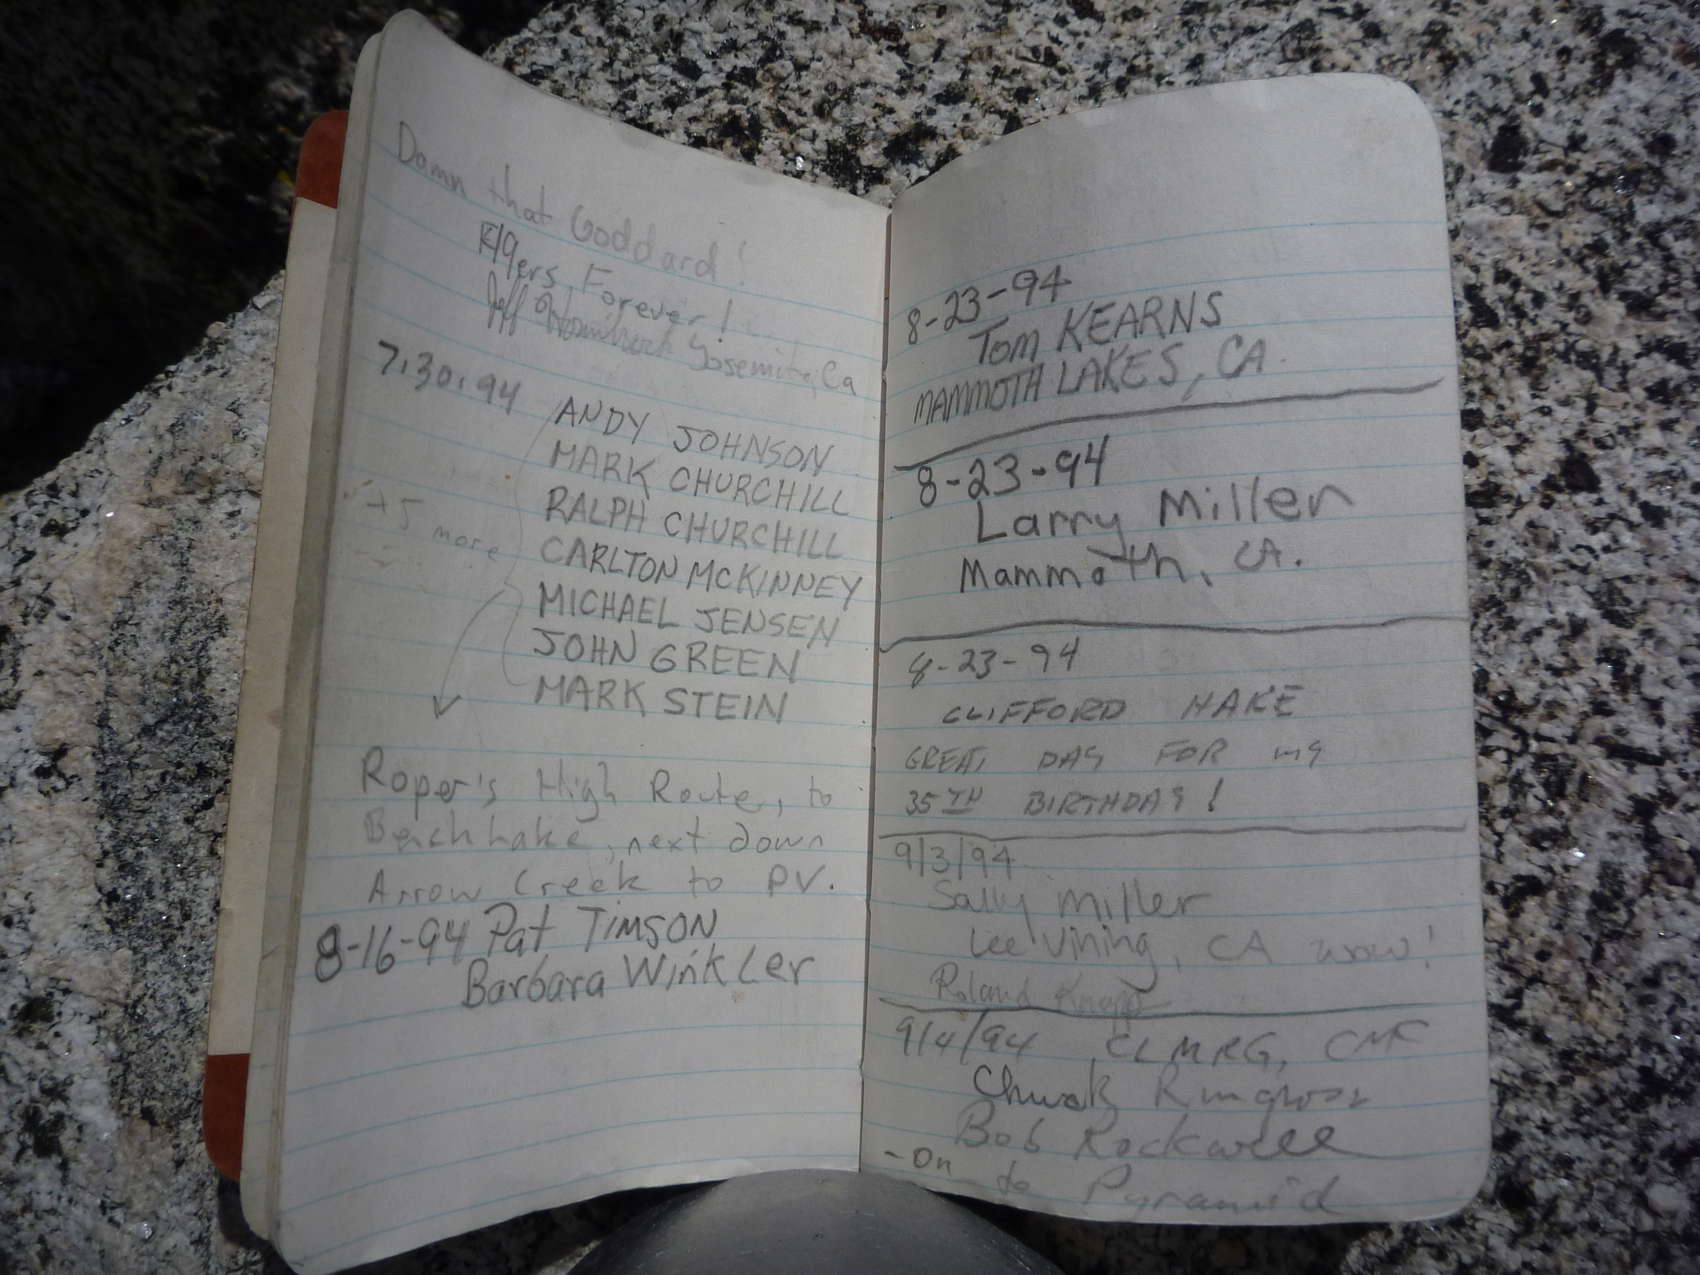 Damn that Goddard!
Forever!
Jeff Yosemite, Ca
7.30.94
ANDY JOHNSON
MARK CHURCHILL
RALPH CHURCHILL
+5 more
CARLTON MCKINNEY
MICHAEL JENSEN
JOHN GREEN
MARK STEIN
Roper's High Route, to
Bench Lake, next down
Arrow Creek to PV.
8-16-94 Pat TIMSON
Barbara WinkLer
8-23-94
TOM KEARNS
MAMMOTH LAKES, CA.
8-23-94
Larry Miller
Mammoth, CA.
8-23-94
CLIFFORD HAKE
GREAT DAY FOR MY
35TH BIRTHDAY!
9/3/94
Sally Miller
Lee Vining, CA wow!
Roland Knapp
9/4/94 CLMRG,
Chuck
Bob Rockwell
- On to Pyramid